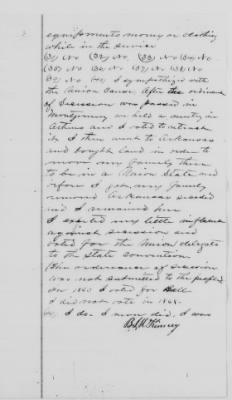 equipments money or clothing
while in the service
(32) No (33) No, (34) No
(35) No (36) No (37) No (38) No
(39) No (40) I sympathized with
the Union Cause. After the ordinance
of Secession was passed in
Montgomery we held a meeting in
Athens and I voted to
it. I then went to Arkansas
and bought land in order to
move my family there
to be in a Union State and
before I got my family
removed Arkansas seceded
and I remained here
I exerted my little influence
against secession and
voted for the Union delegate
to the State convention.
The ordinance of secession
was not submitted to the people
In 1860 I voted for Bell
I did not vote in 1864.
I do. I never did. I was